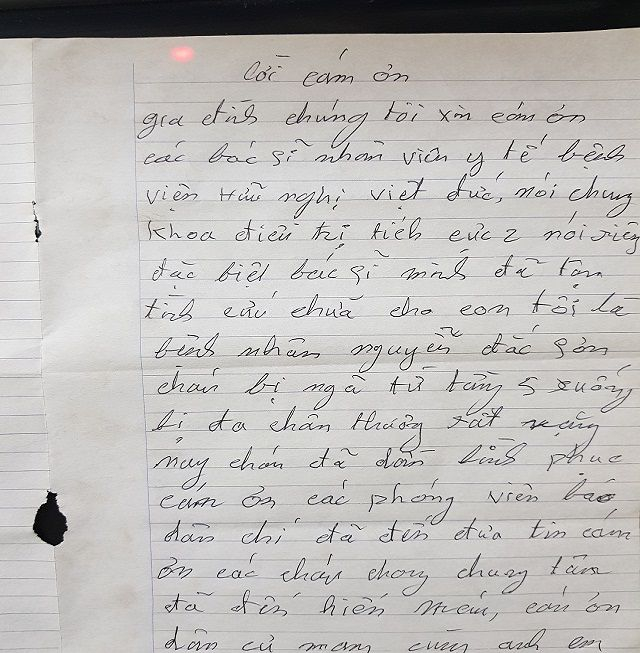 Lời cám ơn
gia đình chúng tôi xin cám ơn
các bác sĩ nhân viên y tế bệnh
viện Hữu nghị việt đức, nói chung
khoa điều trị tích cực 2 nói riêng
đặc biệt bác sĩ minh đã tận
tình cứu chữa cho con tôi là
bệnh nhân nguyễn đắc sơn
cháu bị ngã từ tầng 5 xuống
bị đa chấn thương rất nặng
nay cháu đã dần bình phục
cám ơn các phóng viên báo
dân chí đã đến đưa tin cám
ơn các cháu trong chung tâm
đã đến hiến máu, cám ơn
dân cư mạng cùng anh em